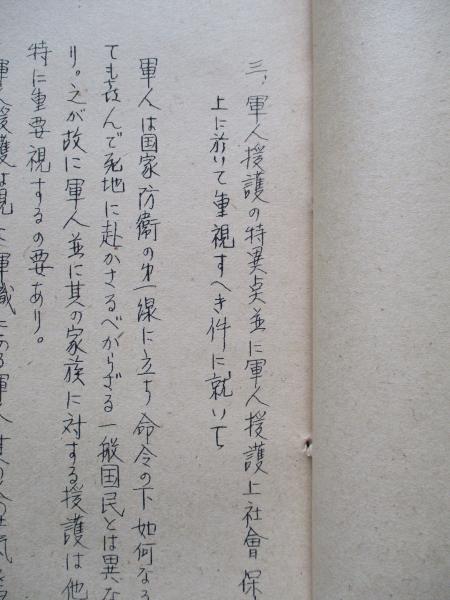 三、軍人援護の特異点並に軍人援護上社會保
上に於いて重視すへき件に就いて
軍人は国家防衛の第一線に立ち命令の下如何なる
ても喜んで死地に赴かさるべからざる一般国民とは異な
り。之が故に軍人並に其の家族に対する援護は他
特に重要視するの要あり。
軍人援護は現に軍職にある軍人